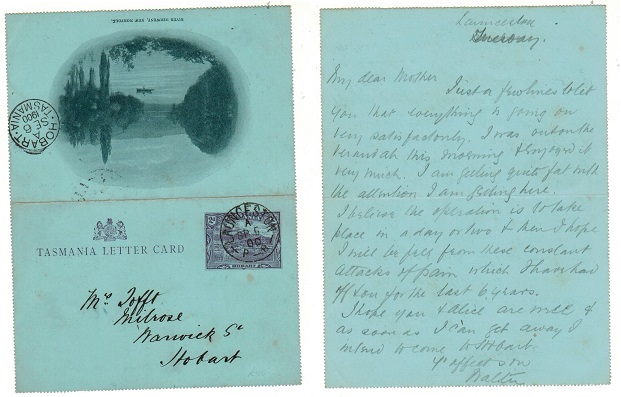 RIVER DERWENT, NEW NORFOLK.
HOBART
A
SE 6
1900
TASMANIA
TASMANIA LETTER CARD
LAUNCESTON
A
HOBART
Mrs Tofft
Milrose
Warwick St
Hobart
Launceston
Tuesday.
My dear Mother
Just a few lines to let
you that everything is going on
very satisfactorily. I was out on the
verandah this morning & enjoyed it
very much. I am getting quite fat with
the attention I am getting here.
I believe the operation is to take
place in a day or two & then I hope
I will be free from these constant
attacks of pain which I have had
off & on for the last 6 years.
I hope you & Alice are well &
as soon as I can get away I
intend to come to Hobart.
Yr affect son
Walter